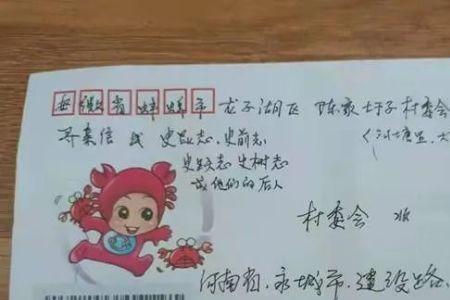 安徽省蚌埠市 龙子湖区 陈家圩子村委会
寻亲信 找 史昌志、史前志
史树志
或他们的后人
村委会 收
河南省、永城市、建设路